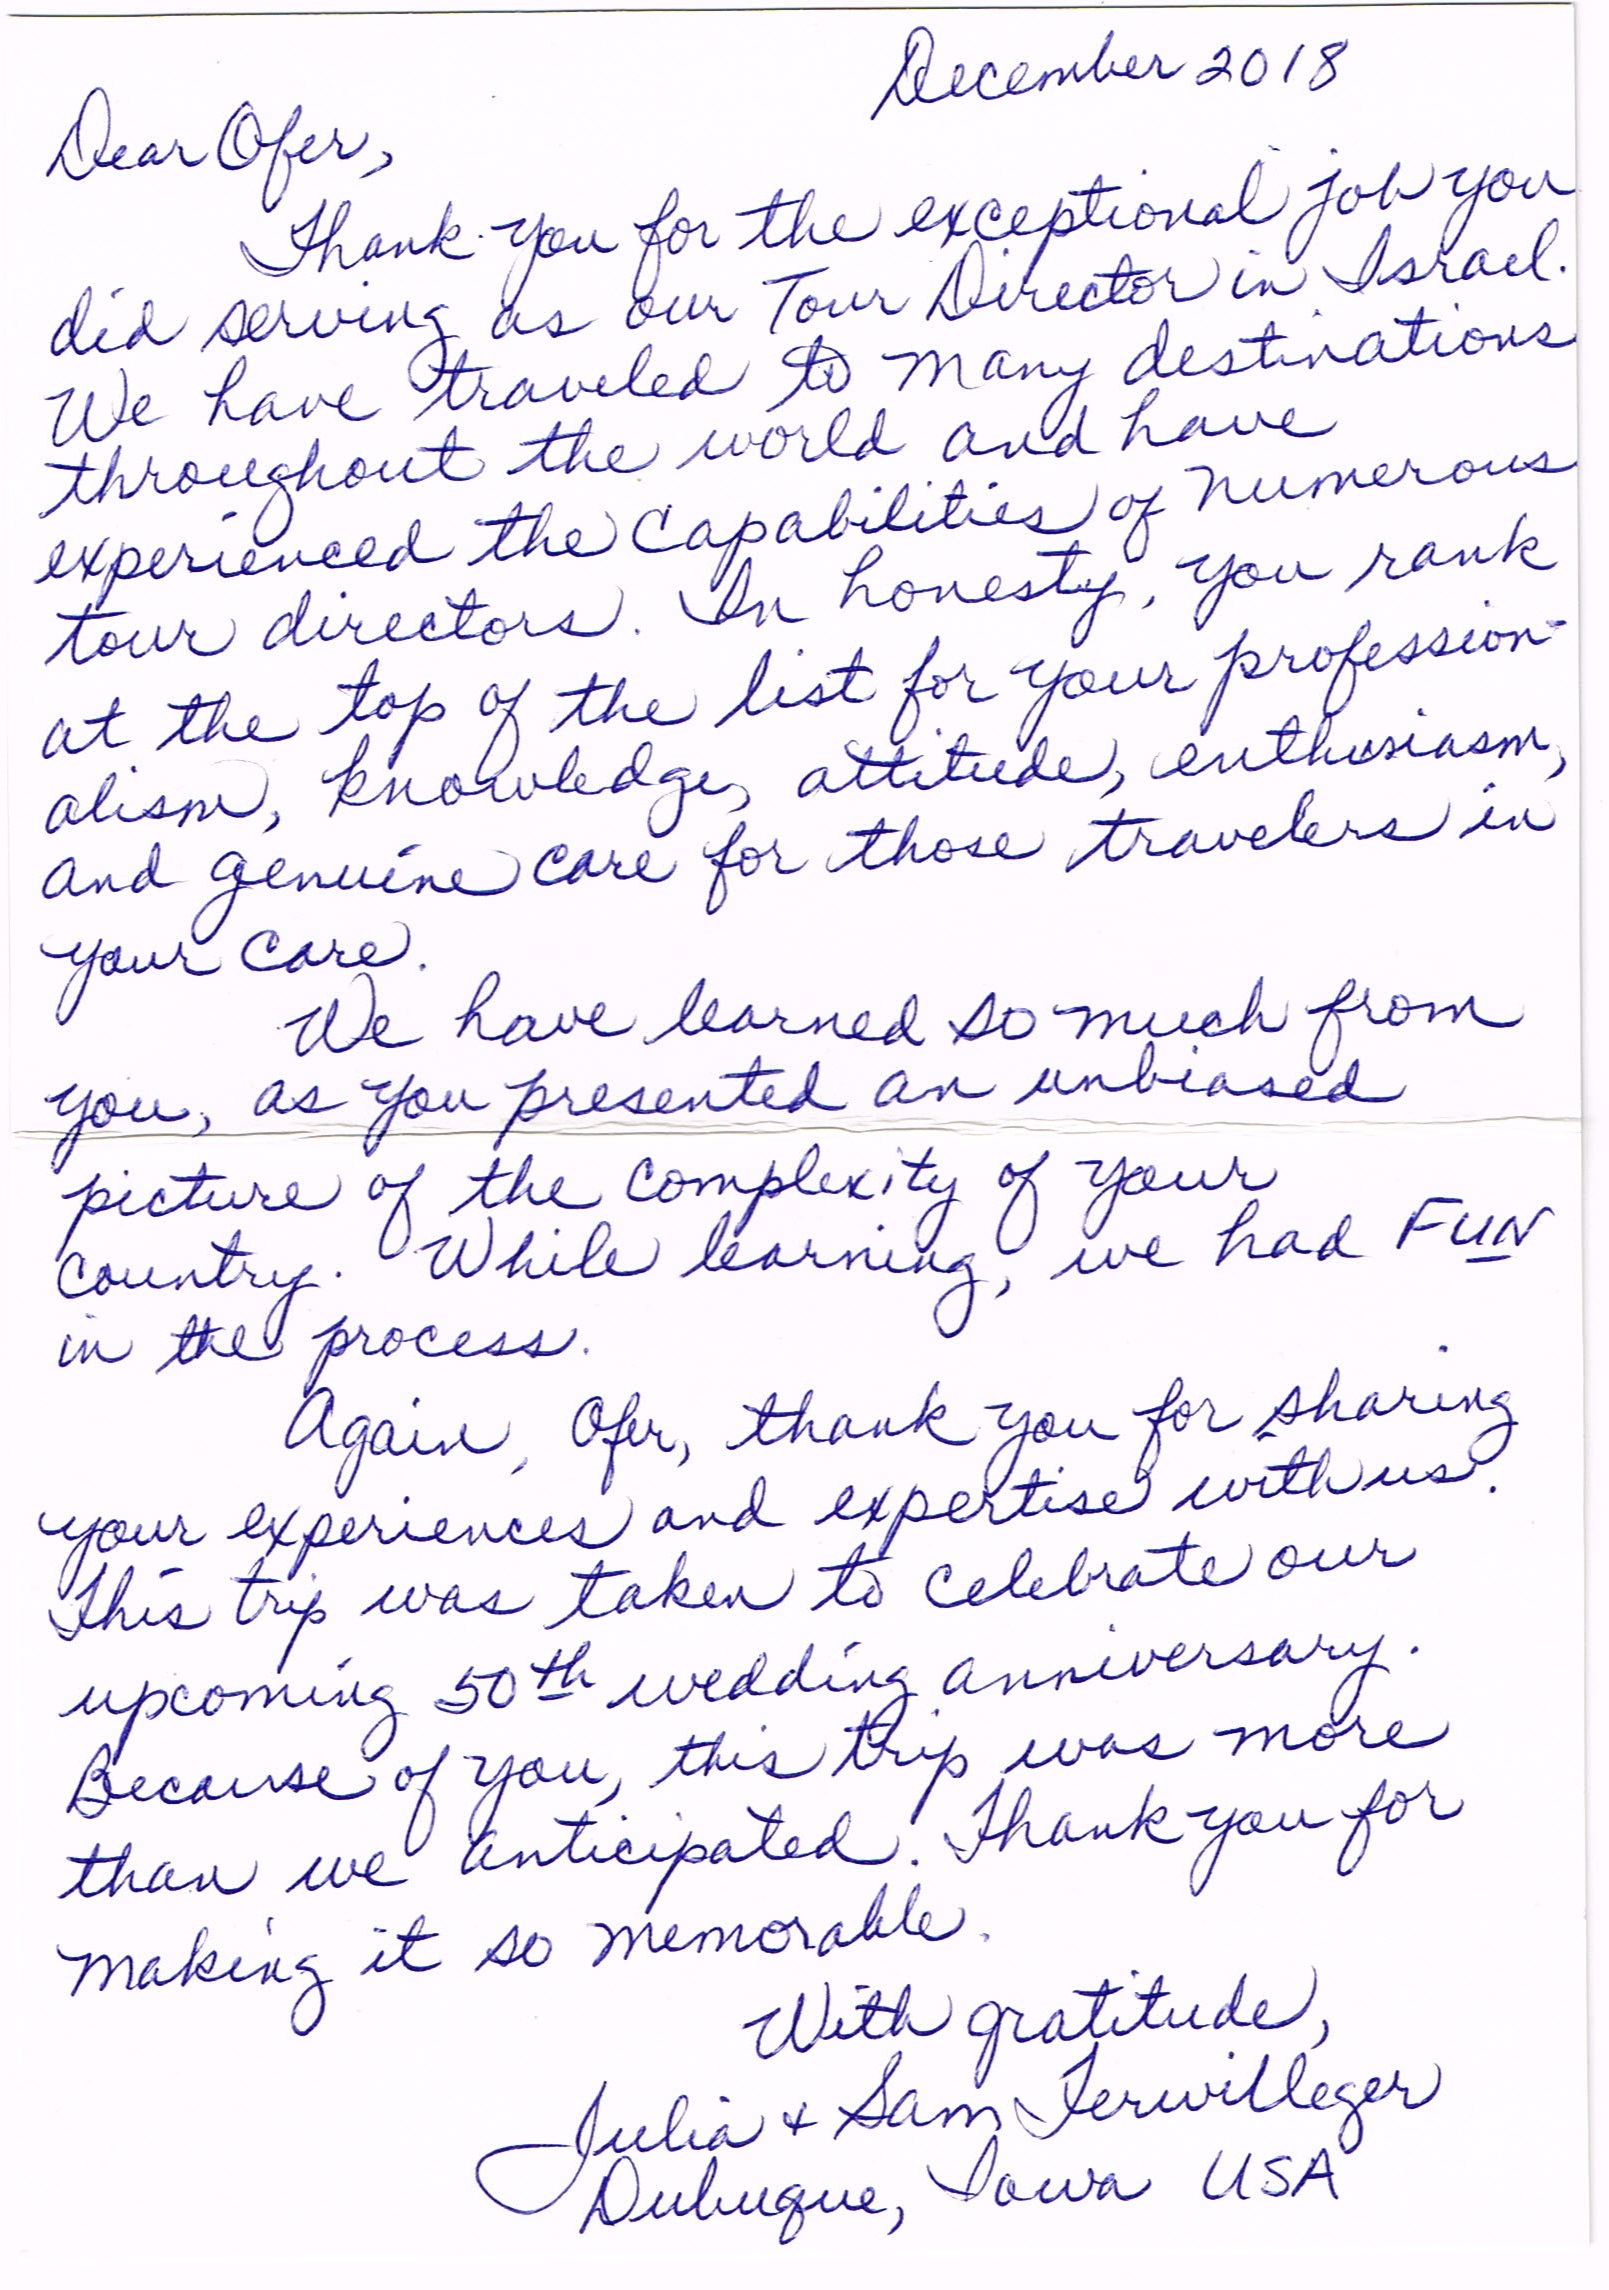 December 2018
Dear Ofer,
Thank you for the exceptional job you
did serving as our Tour Director in Israel.
We have traveled to many destinations
throughout the world and have
experienced the capabilities of numerous
tour directors. In honesty, you rank
at the top of the list for your profession-
alism, knowledge, attitude, enthusiasm,
and genuine care for those travelers in
your care.
We have learned so much from
you, as you presented an unbiased
picture of the complexity of your
country. While learning, we had FUN
in the process.
Again, Ofer, thank you for sharing
your experiences and expertise with us.
This trip was taken to celebrate our
upcoming 50th wedding anniversary.
Because of you, this trip was more
than we anticipated. Thank you for
making it so memorable.
With gratitude,
Julia + Sam Terwilleger
Dubuque, Iowa USA